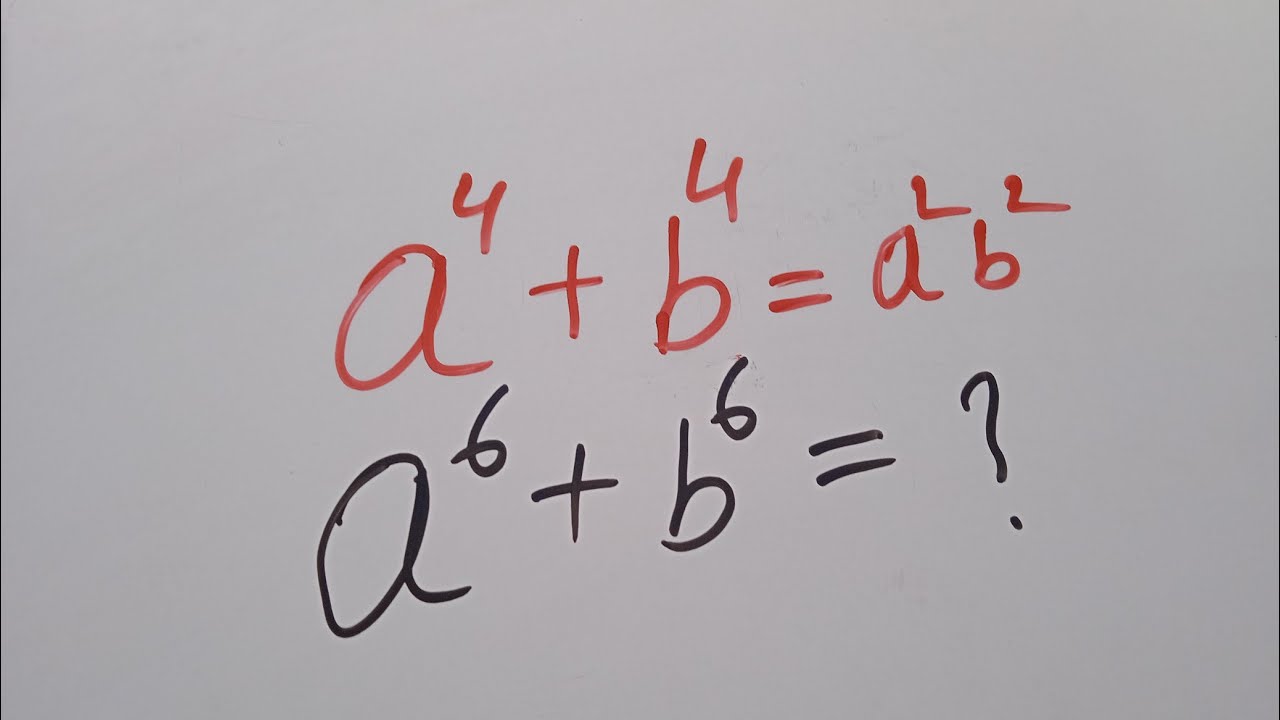 a⁴ + b⁴ = a²b²
a⁶ + b⁶ = ?